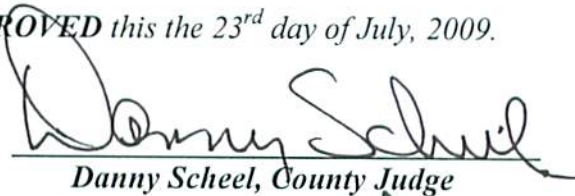 ROVED this the 23rd day of July, 2009.
Danny Scheel
Danny Scheel, County Judge